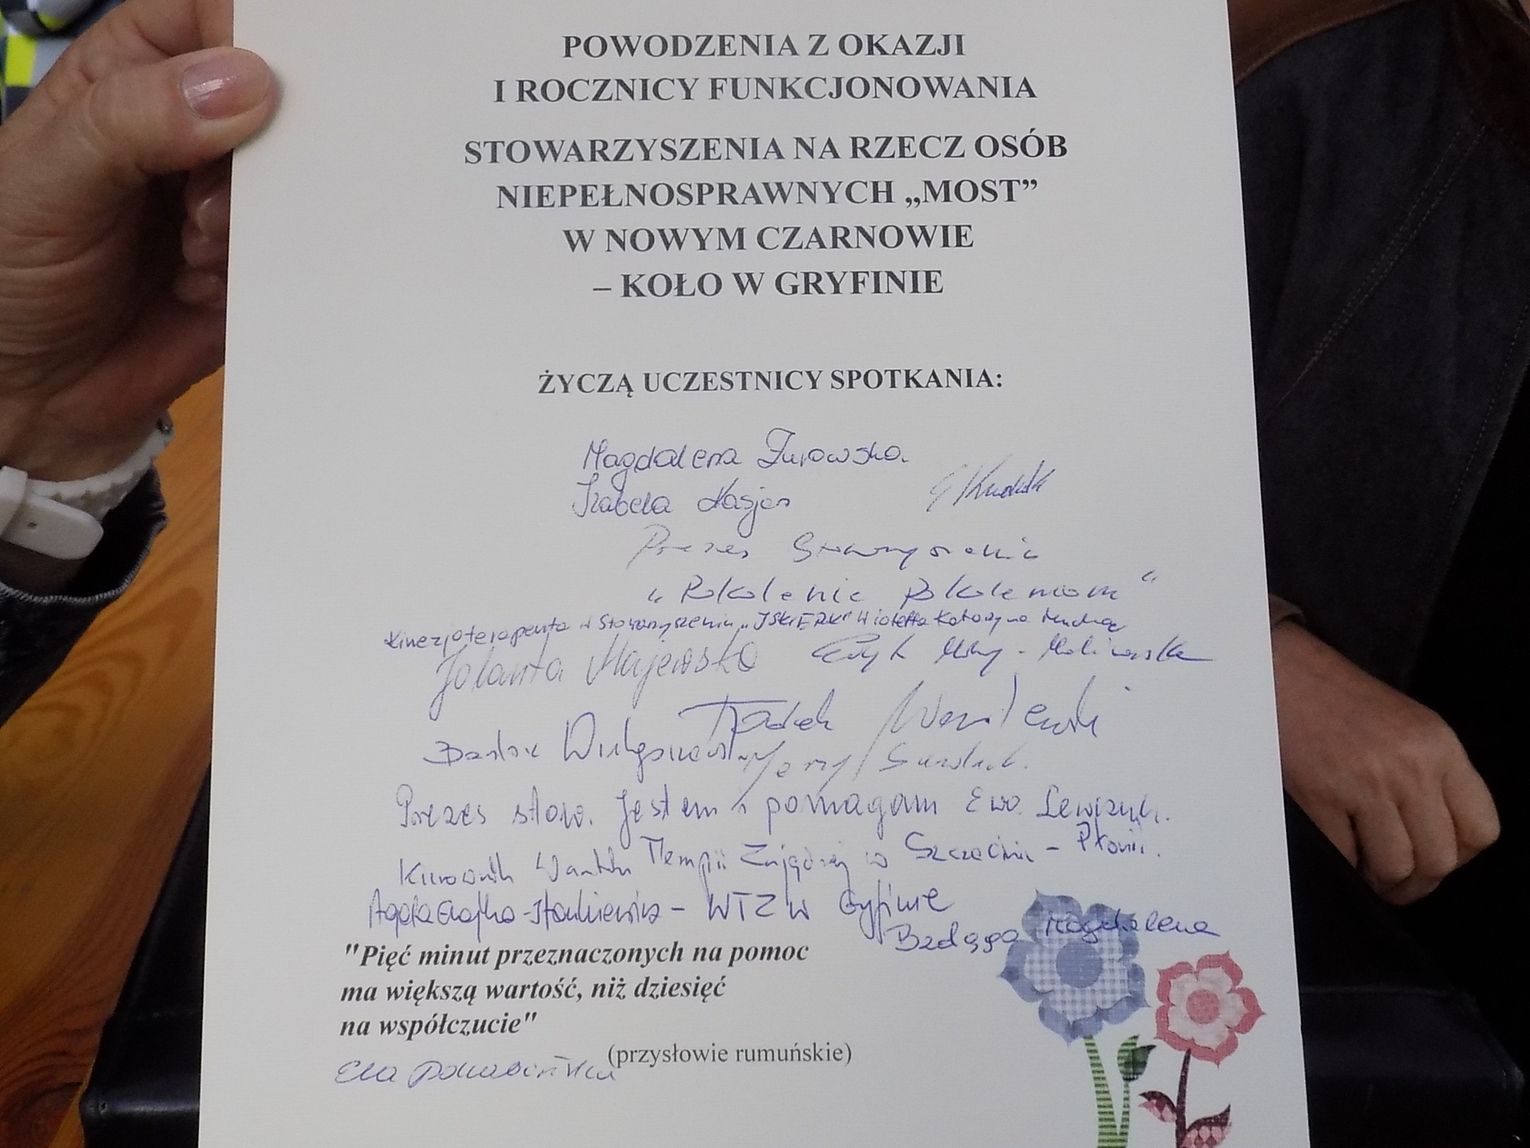 POWODZENIA Z OKAZJI
I ROCZNICY FUNKCJONOWANIA
STOWARZYSZENIA NA RZECZ OSÓB
NIEPEŁNOSPRAWNYCH „MOST”
W NOWYM CZARNOWIE
– KOŁO W GRYFINIE
ŻYCZĄ UCZESTNICY SPOTKANIA:
Magdalena Żurowska
Izabela Kasjan
Prezes Stowarzyszenia
„Pokolenie Pokoleniom"
Kinezjoterapeuta w Stowarzyszeniu „ISKIERKI" Wioletta Katarzyna
Jolanta Majewska
Tadek Wasilewski
Jerzy
Prezes stow. Jestem i pomagam Ewa Lewczuk.
Kierownik Terapii Zajęciowej w Szczecinie - Płoni.
Agata - WTZ w Gryfinie
Magdalena
"Pięć minut przeznaczonych na pomoc
ma większą wartość, niż dziesięć
na współczucie"
(przysłowie rumuńskie)
Ela